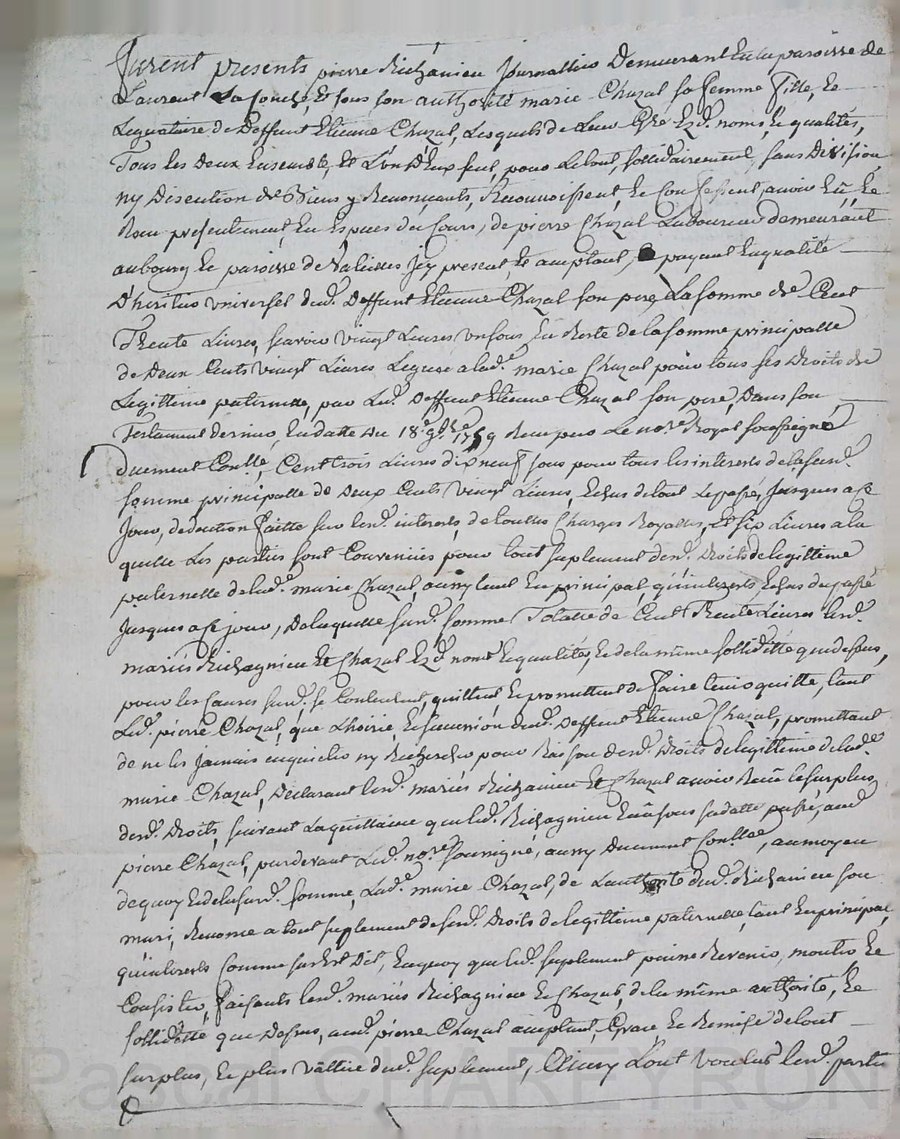 furent presents, pierre Richanieu Journallier Demeurant En la paroisse de
Laurent La souche, Et sous son authorité marie Chazal sa femme fille, Et
Legataire de Deffunt Etienne Chazal, Lesquels de Leur Gré Ezd. noms, & qualités,
Tous les Deux Ensemble, Et L'un D'Eux seul, pour Le tout, sollidairement, sans Division
ny Discution de Biens y Renonçants, Reconnoissent, Et Confessent, avoir Eû Et
Receu presentement En Especes du Cours, de pierre Chazal Laboureur demeurant
au bourg Et paroisse de Jcy present, Et acceptant, payant En qualité
D'heritier Vniversel dud. Deffunt Etienne Chazal son pere, La somme de Cent
Trente Livres, scavoir vingt Livres un sous En Reste de la somme principalle
de Deux Cents vingt Livres Leguée a lad.e marie Chazal pour tous ses Droits de
Legittime paternelle, par Led. Deffunt Etienne Chazal son pere, Dans son
Testament dernier, En datte du 18.e 9bre 1759 Receu par Le no.re Royal soussigné
Duement Conllé, Cent trois Livres dix neuf sous pour tous les interets de la susd.
somme principalle de Deux Cents vingt Livres, Echus de tout Le passé, Jusques a Ce
Jour, deduction faitte sur lesd. interets de touttes Charges Royalles, Et six Livres a la
quelle Les parties sont Convenües pour tout suplement desd. Droits de legittime
paternelle de lad.e marie Chazal, aussy tant En principal qu'interets Echus du passé
Jusques a Ce jour, De laquelle susd. somme Totalle de Cent Trente Livres lesd.
mariés Richagnieu Et Chazal Ezd. noms Et qualités, Et de la même sollidité que dessus,
pour les Causes susd. se Contentent, quittent, Et promettent de faire tenir quitte, tant
Led. pierre Chazal, que L'hoirie Et succession dud. Deffunt Etienne Chazal, promettant
de ne les Jamais inquieter ny Rechercher pour Raison desd. Droits de legittime de lad.e
marie Chazal, Declarant lesd. mariés Richanieu Et Chazal avoir Receu le surplus
desd. Droits, suivant La quittance que led. Richagnieu En a sous sa datte passé, aud.
pierre Chazal, pardevant Led. no.re soussigné, aussy Duement Conllée, au moyen
de quoy Et de la susd. somme, Lad.e marie Chazal, de L'authorité dud. Richanieu son
mari, Renonce a tout suplement de sesd. Droits de legittime paternelle, tant En principal,
qu'interets Comme sus Est Dit, En quoy que led. suplement puisse Revenir, monter Et
Consister, faisants lesd. mariés Richagnieu Et Chazal, de la même authorité, Et
sollidité que Dessus, aud. pierre Chazal acceptant, Grace Et Remise de tout
surplus, Et plus vallüe dud. suplement, Ainsy L'ont Voulu lesd. parti
Pascal CHAREYRON